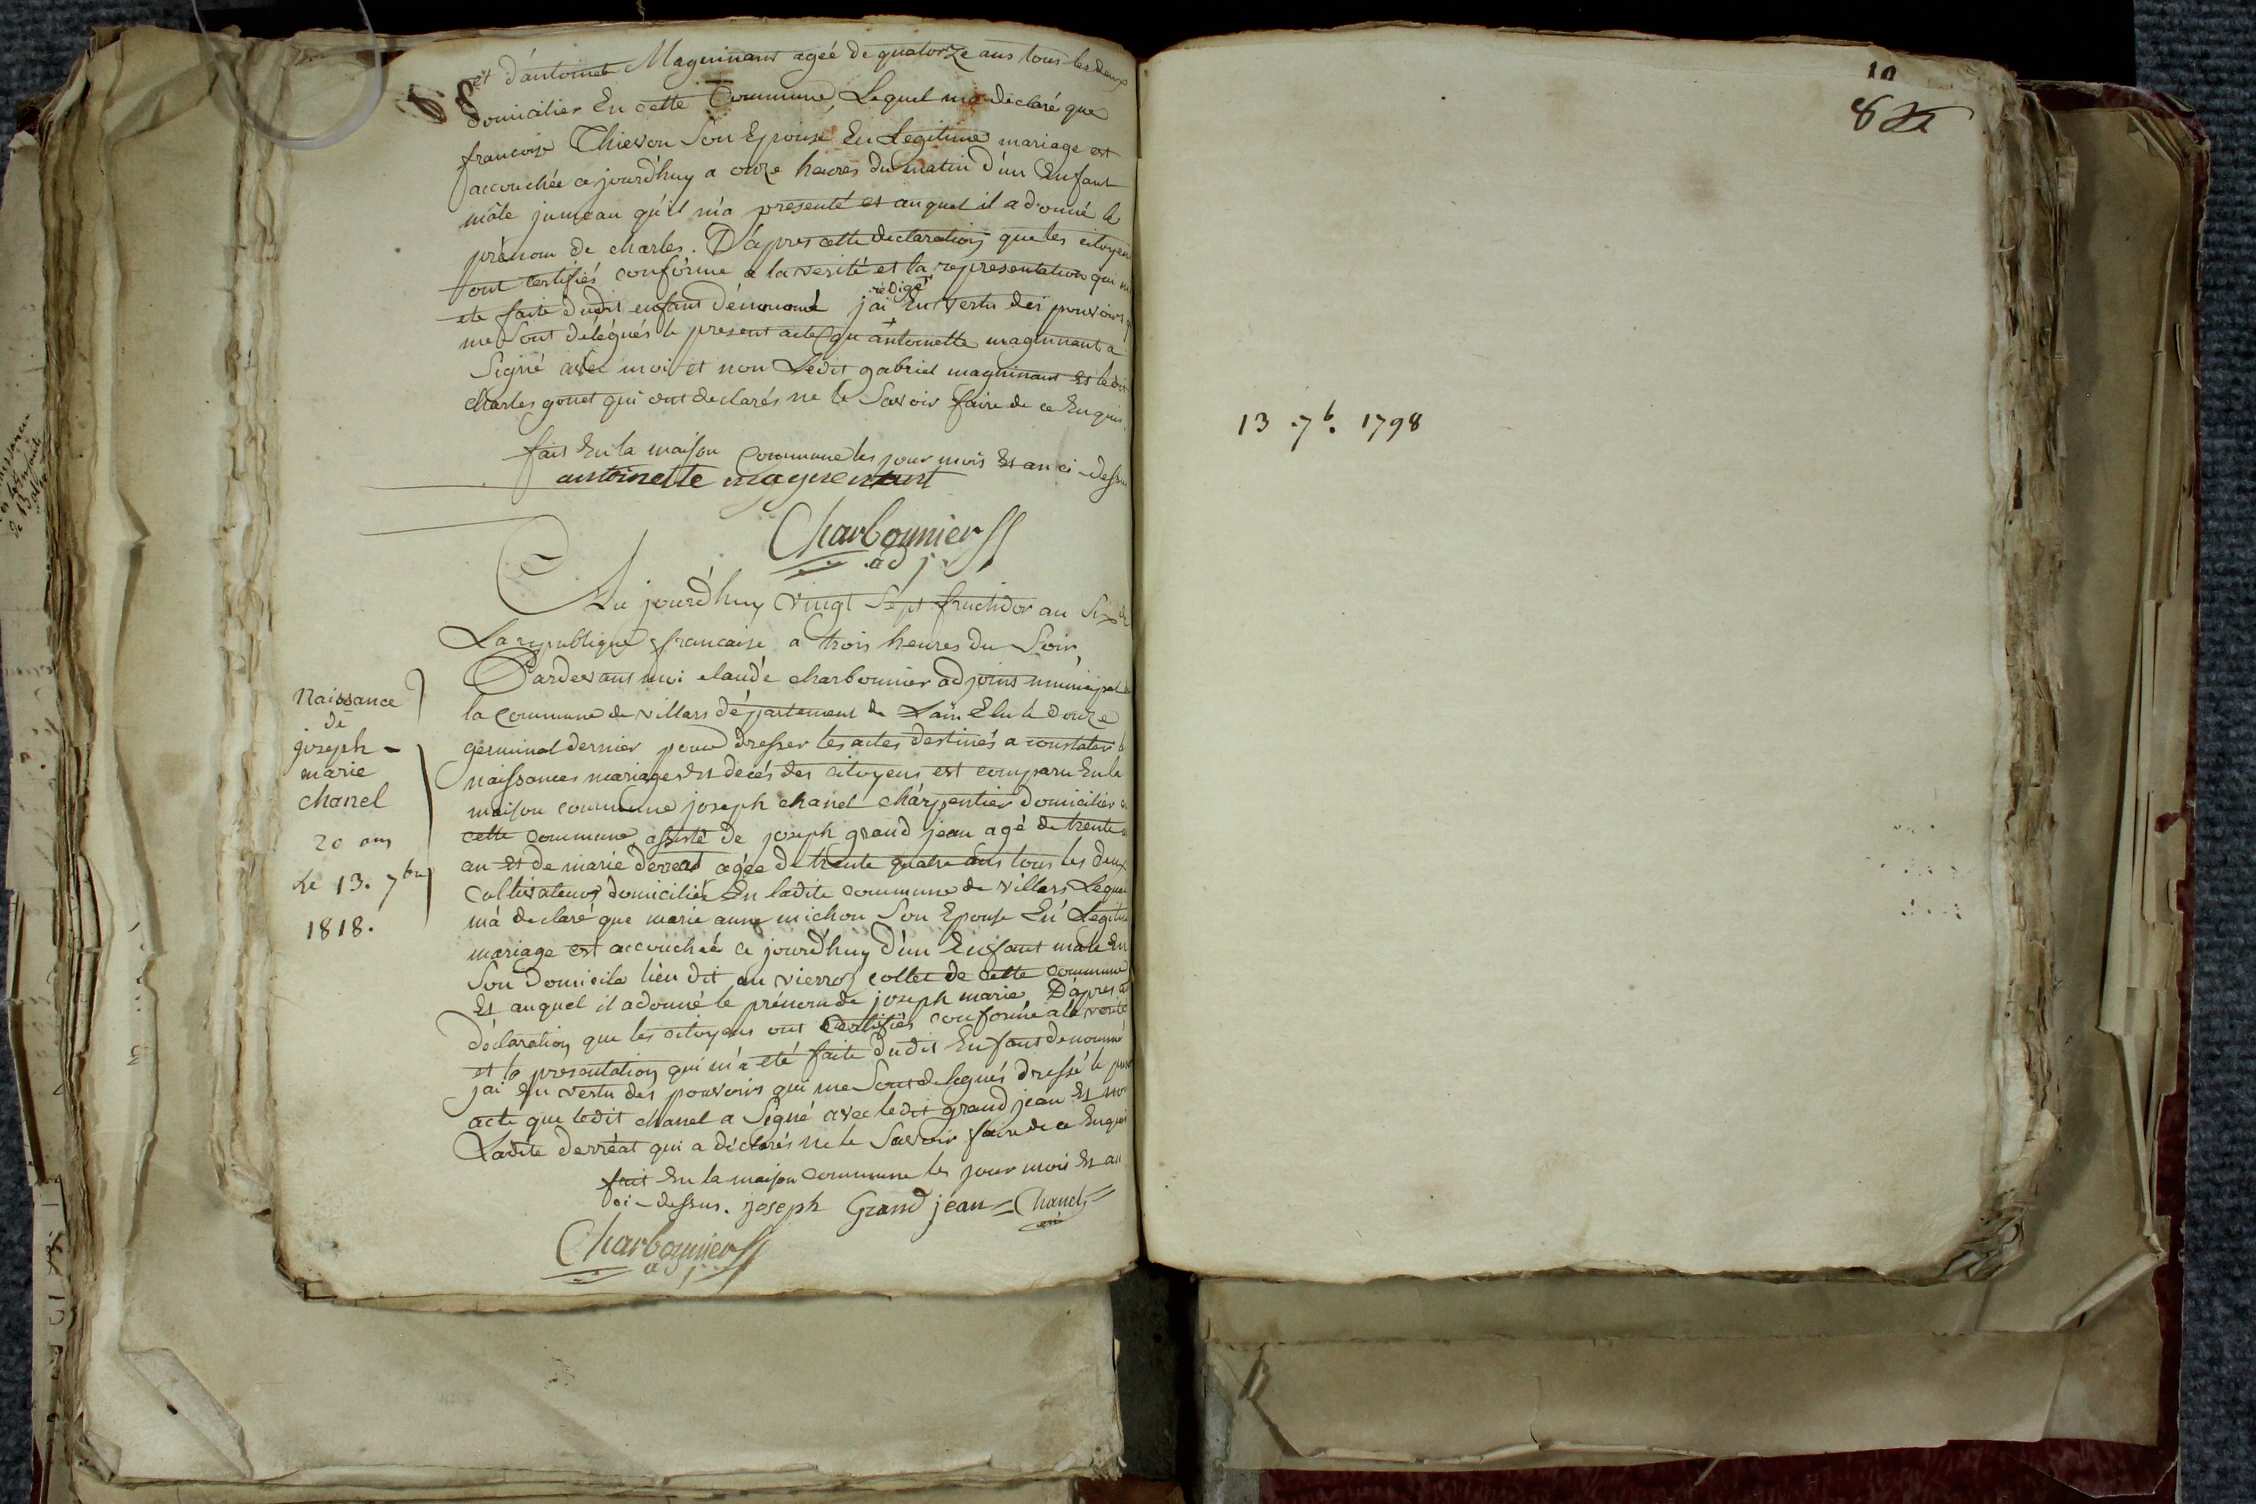 et d'antoinet Magninant ageé de quatorze ans tous les deux
domicilier En cette Commune Lequel m'a declaré que
francoise Thievon Son Epouse En Legitime mariage est
accouchée ce jourd'huy a onze heures du matin d'un Enfant
mâle jumeau qu'il m'a presenté et auquel il a donné le
prénom de charles. D'apres cette declaration que les citoyens
ont certifiés conforme a la verité et la representation qui m
eté faite dudit enfant dénommé jai rédigé En vertu des pouvoirs q
me Sont délégués le present acte qu'antoinette magninant a
Signé avec moi et non Ledit gabriel magninant Et ledit
charles gonet qui ont declarés ne le Savoir faire de ce Enquis.
fait En la maison commune les jour mois Et an ci-dessus
antoinette magnenant
Charbonnier
adj
Au jourd'huy vingt Sept fructidor an Six de
La republique francaise a trois heures du Soir,
Pardevant moi claude charbonnier adjoint municipal de
la commune de villars département de L'ain Elu le douze
germinal dernier pour dresser les actes destinés a constater l
naissances mariages Et décés des citoyens est comparu En la
maison commune joseph chanel charpentier domicilier e
cette commune assisté de joseph grand jean agé de trente
an et de marie derreat agée de trente quatre ans tous les deux
Cultivateurs domiciliés En ladite commune de villars Lequel
m'a declaré que marie anne michon Son Epouse En Legitime
mariage est accouchée ce jourd'huy d'un Enfant male En
Son domicile lieu dit au vierroz collet de cette commune
Et auquel il a donné le prénom de joseph marie D'apres
déclaration que les citoyens ont certifiés conforme a la verité
et la presentation qui m'a eté faite dudit Enfant denommé
jai En vertu des pouvoirs qui me Sont delegués dressé le
acte que ledit chanel a Signé avec ledit grand jean Et non
Ladite derréat qui a déclarés ne le Savoir faire de ce Enquis
fait En la maison commune les jour mois Et an
ci-dessus. joseph Grand jean Chanel
Charbonnier
adj
Naissance
de
joseph-
marie
chanel
20 ans
Le 13. 7bre
1818.
10
8
13 .7b. 1798